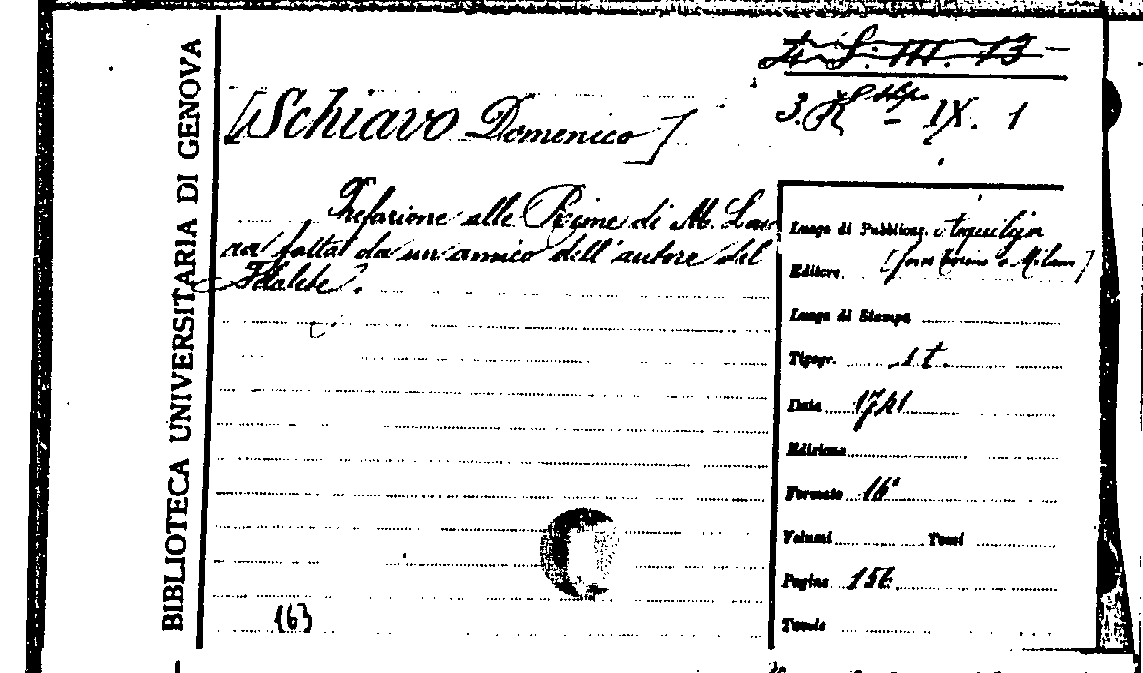 BIBLIOTECA UNIVERSITARIA DI GENOVA
4. S. III. 13
3. IX. 1
[Schiavo Domenico]
Prefazione alle Rime di M. Lau
ra fatta da un amico dell'autore del
Luogo di Pubblicaz.
Editore. Milano]
Luogo di Stampa
Tipogr. s.t.
Data 1741
Edizione
Formato 16°
Volumi Tomi
Pagine 156
Tavole
163